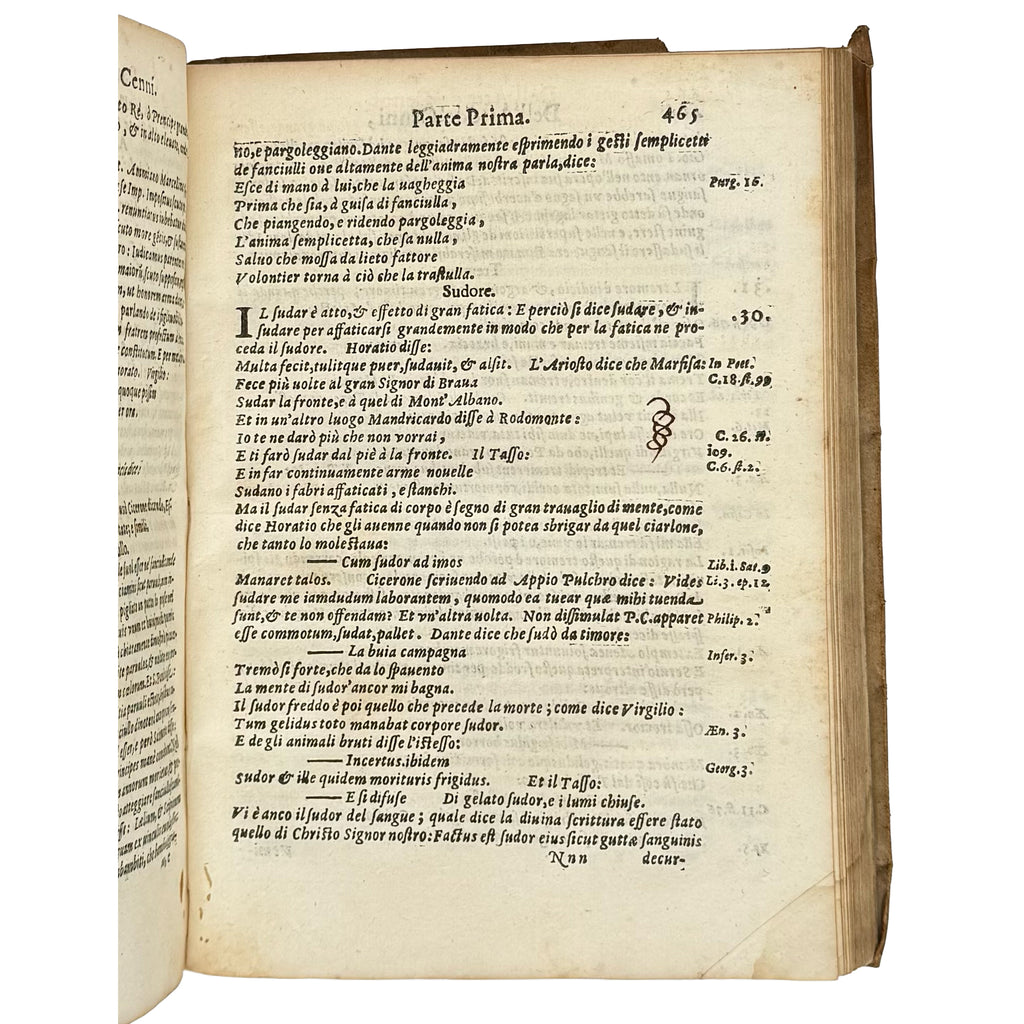 Cenni.
Parte Prima. 465
no, e pargoleggiano. Dante leggiadramente esprimendo i gesti semplicetti
de fanciulli oue altamente dell'anima nostra parla, dice:
Esce di mano à lui, che la uagheggia Purg. 16.
Prima che sia, à guisa di fanciulla,
Che piangendo, e ridendo pargoleggia,
L'anima semplicetta, che sa nulla,
Saluo che mossa da lieto fattore
Volontier torna à ciò che la trastulla.
Sudore.
IL sudar è atto, & effetto di gran fatica: E perciò si dice sudare, & in- .30.
sudare per affaticarsi grandemente in modo che per la fatica ne pro-
ceda il sudore. Horatio disse:
Multa fecit, tulitque puer, sudauit, & alsit. L'Ariosto dice che Marfisa: In Poet.
Fece più uolte al gran Signor di Braua C.18. st. 99
Sudar la fronte, e à quel di Mont'Albano.
Et in un'altro luogo Mandricardo disse à Rodomonte:
Io te ne darò più che non vorrai, C. 26. st.
E ti farò sudar dal piè à la fronte. Il Tasso: 109.
E in far continuamente arme nouelle C. 6. st. 2.
Sudano i fabri affaticati, e stanchi.
Ma il sudar senza fatica di corpo è segno di gran trauaglio di mente, come
dice Horatio che gli auenne quando non si potea sbrigar da quel ciarlone,
che tanto lo molestaua:
—— Cum sudor ad imos Lib. i. Sat. 9
Manaret talos. Cicerone scriuendo ad Appio Pulchro dice: Vides Li. 3. ep. 12
sudare me iamdudum laborantem, quomodo ea tuear quæ mihi tuenda
sunt, & te non offendam? Et vn'altra uolta. Non dissimulat P.C. apparet Philip. 2.
esse commotum, sudat, pallet. Dante dice che sudò da timore:
—— La buia campagna Infer. 3.
Tremò sì forte, che da lo spauento
La mente di sudor'ancor mi bagna.
Il sudor freddo è poi quello che precede la morte; come dice Virgilio:
Tum gelidus toto manabat corpore sudor. Æn. 3.
E de gli animali bruti disse l'istesso:
—— Incertus ibidem Georg. 3.
Sudor & ille quidem morituris frigidus. Et il Tasso:
—— E si difuse Di gelato sudor, e i lumi chiuse.
Vi è anco il sudor del sangue; quale dice la diuina scrittura essere stato
quello di Christo Signor nostro: Factus est sudor eius sicut guttæ sanguinis
Nnn decur-